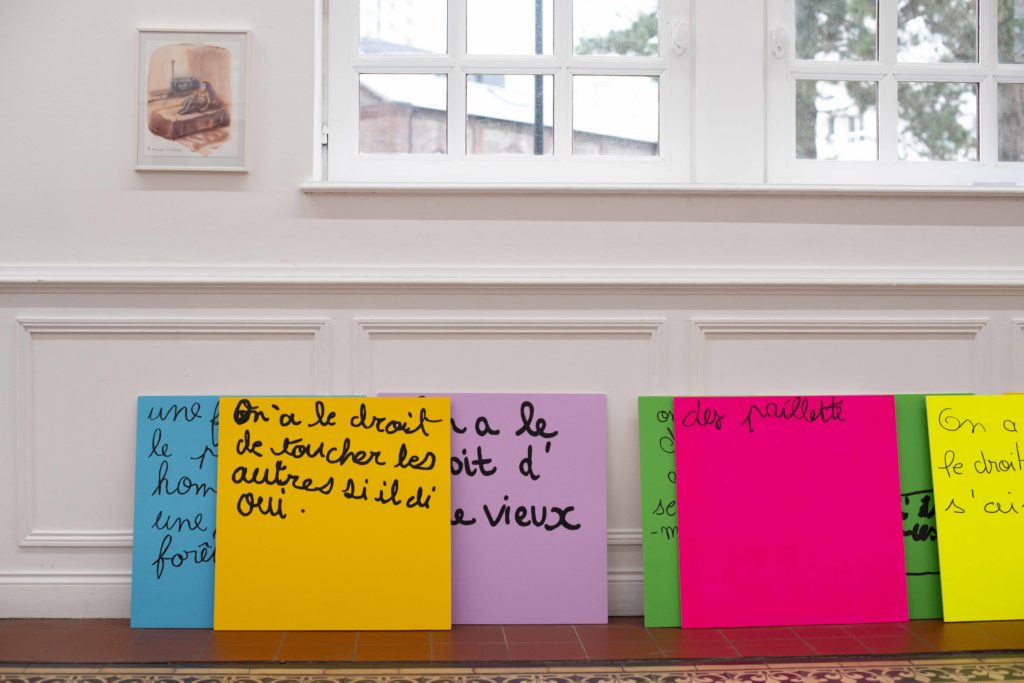 une
le
hom
une
forê
On a le droit
de toucher les
autres si il di
oui .
a le
oit d'
vieux
des paillette
On a
le droit
s'ai